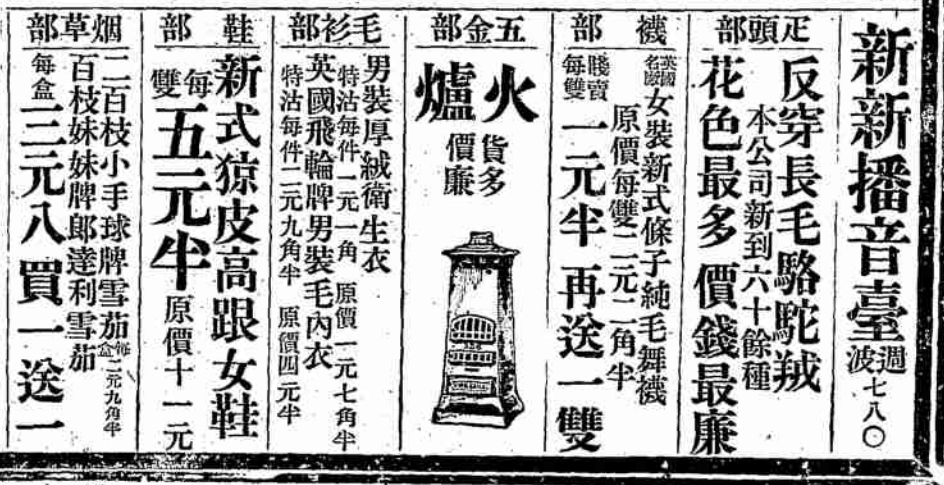 新新播音臺
週波七八〇
疋頭部
反穿長毛駱駝羢
本公司新到六十餘種
花色最多價錢最廉
襪部
英國名廠女裝新式條子純毛舞襪
原價每雙二元二角半
賤賣每雙一元半再送一雙
五金部
火爐
貨多
價廉
毛衫部
男裝厚絨衛生衣
特沽每件一元一角 原價一元七角半
英國飛輪牌男裝毛內衣
特沽每件二元九角半 原價四元半
鞋部
新式猄皮高跟女鞋
每雙五元半原價十一元
烟草部
二百枝小手球牌雪茄每盒二元九角半
百枝妹妹牌郎達利雪茄
每盒三元八買一送一